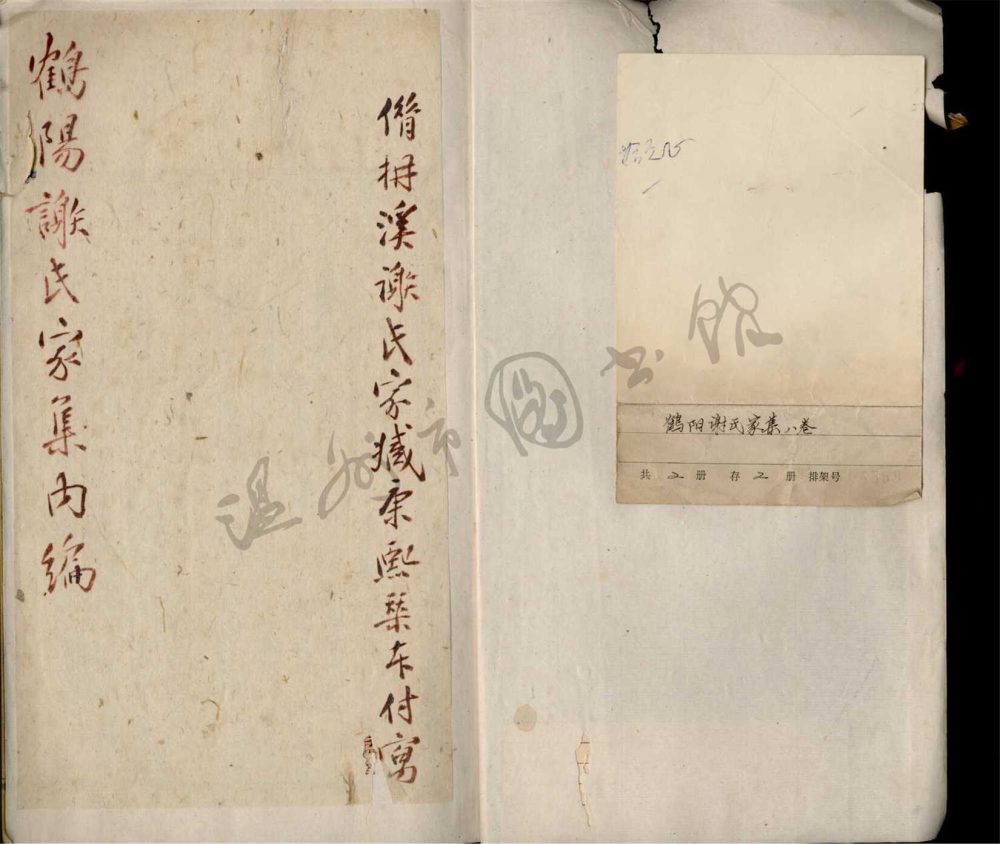 借枏溪謝氏家臧康熙槧本付寫
鶴陽謝氏家集内編
鹤阳谢氏家集八卷
共 2 册 存 2 册 排架号
温州市图书馆